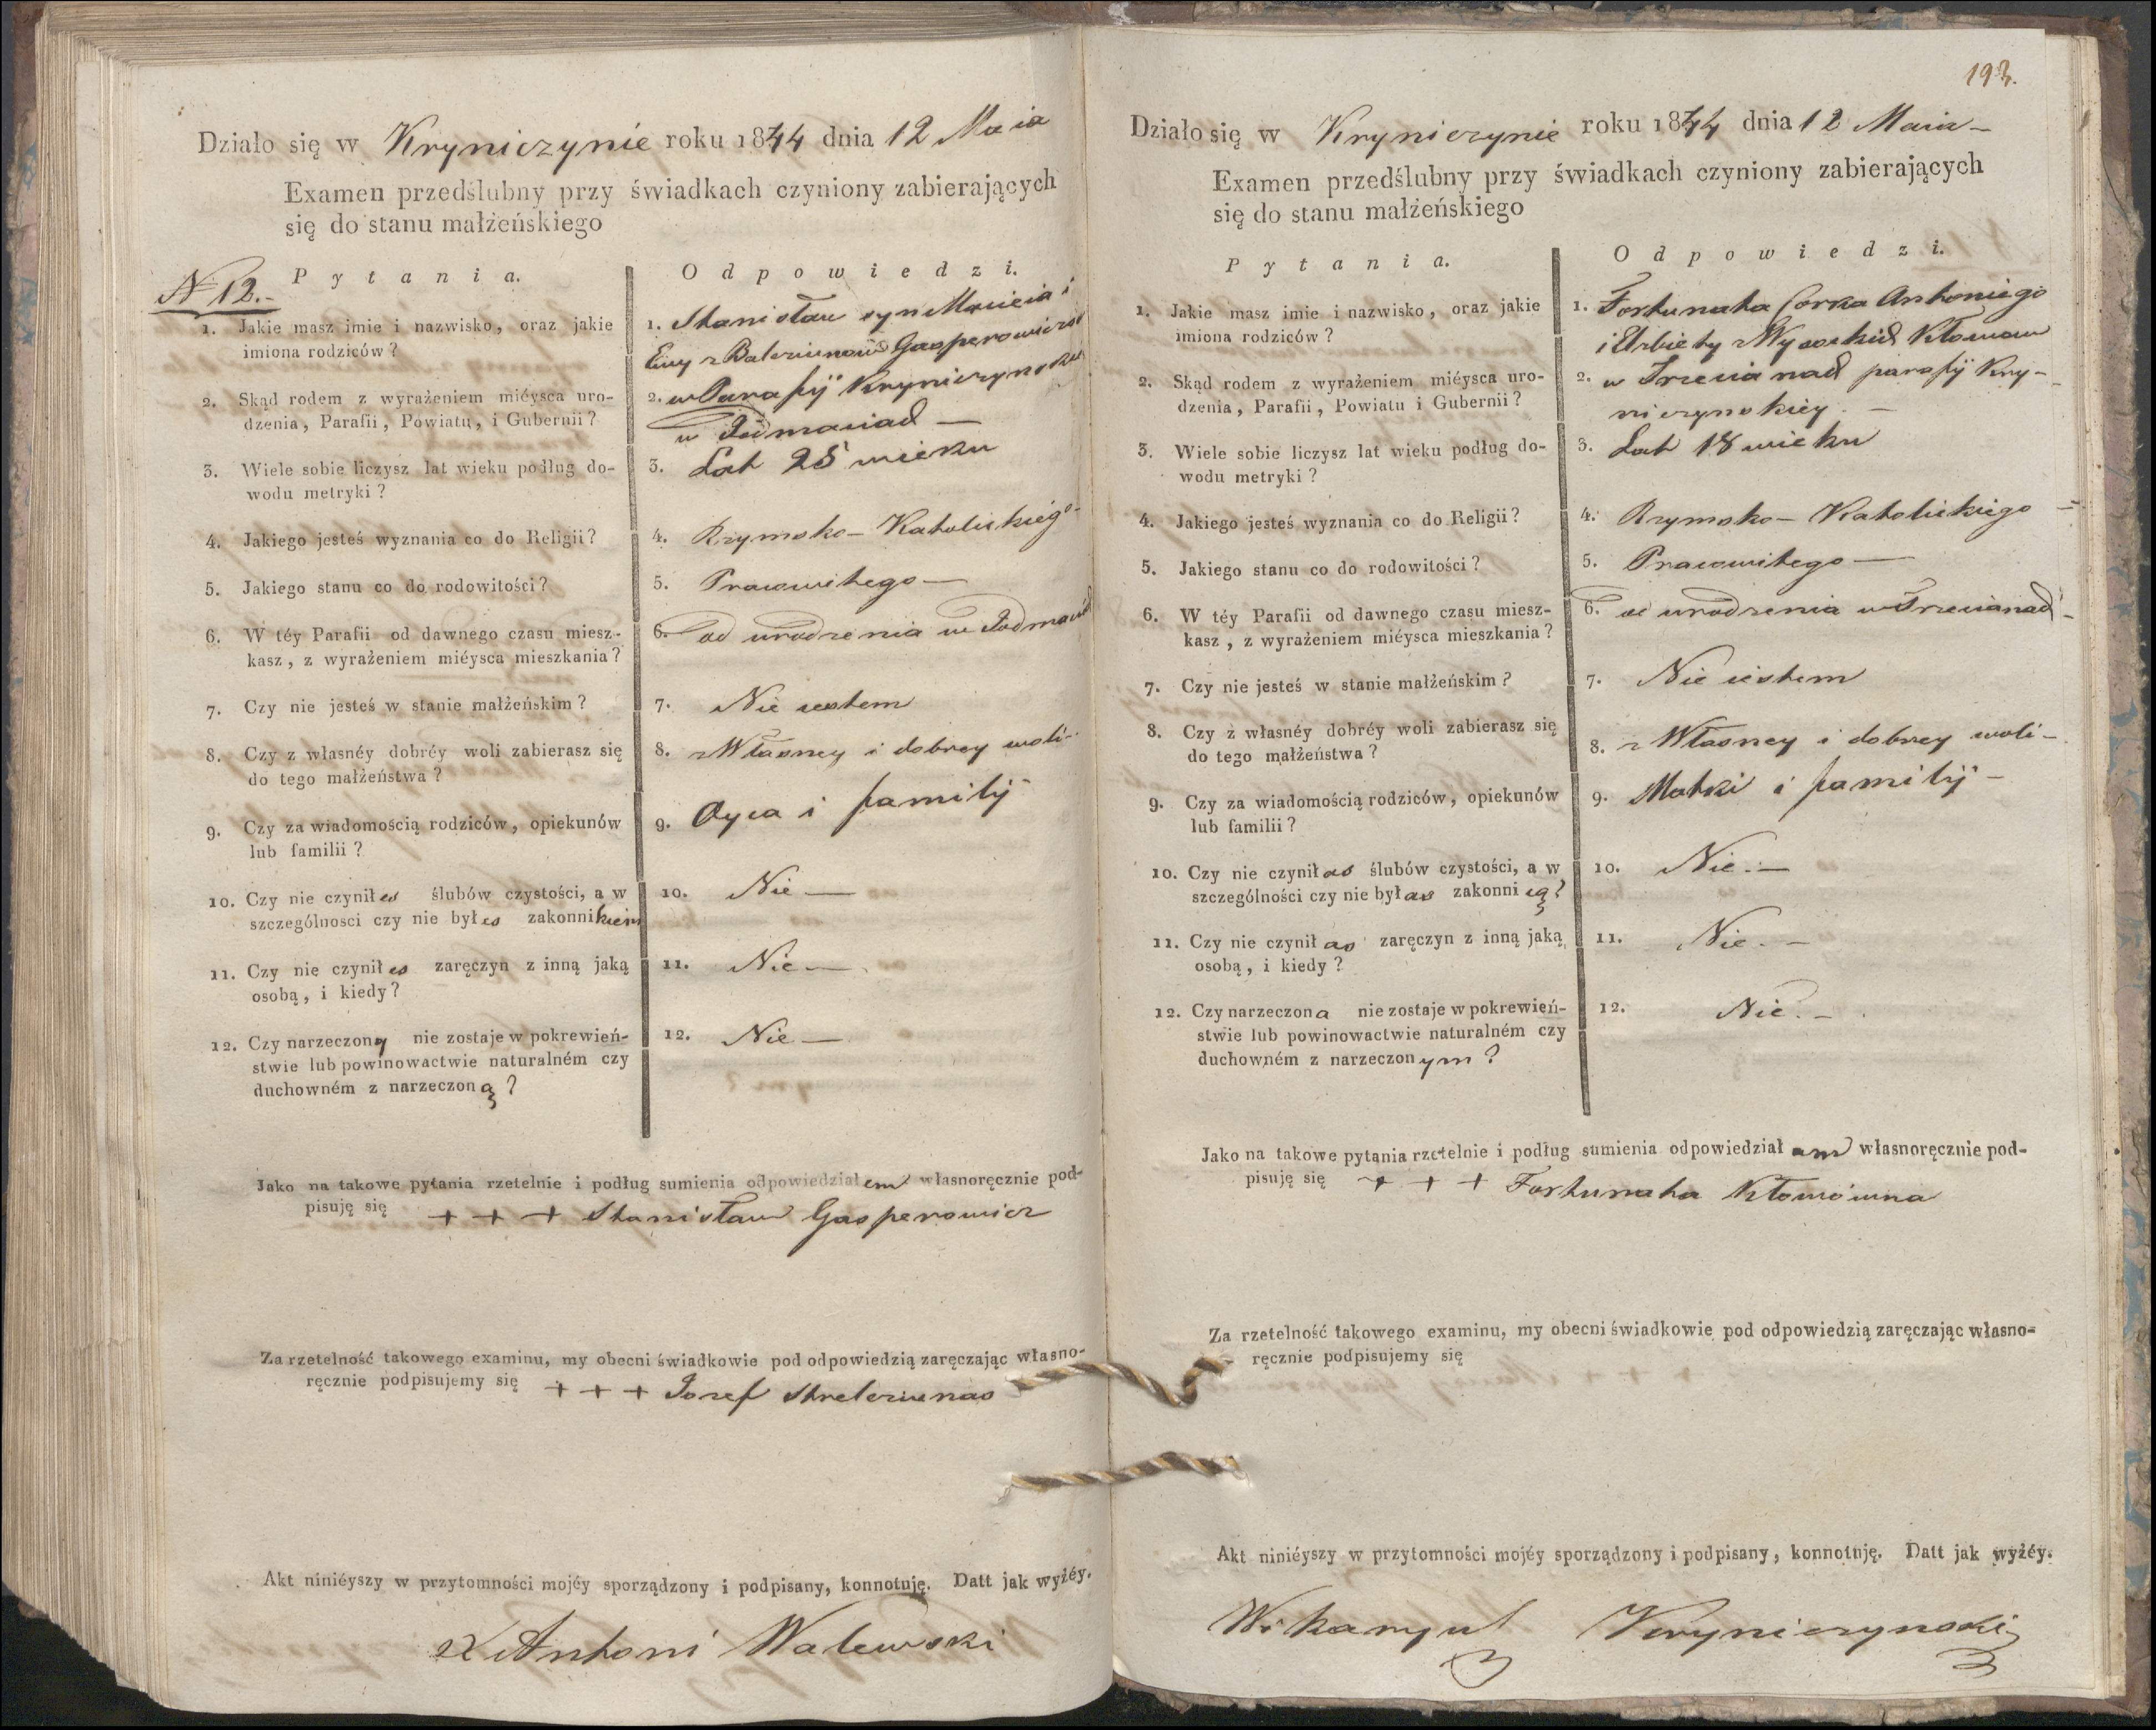 Działo się w Kryniczynie roku 1844 dnia 12 Maia
Examen przedślubny przy świadkach czyniony zabierających
się do stanu małżeńskiego
N 12.-
Pytania.
Odpowiedzi.
1. Jakie masz imie i nazwisko, oraz jakie
imiona rodziców?
1. Stanisław syn Macieia i
Ewy z Balcziunow Gasperowiczow
2. Skąd rodem z wyrażeniem miéysca uro-
dzenia, Parafii, Powiatu, i Gubernii?
2. w Parafij Kryniczynskiey
w
3. Wiele sobie liczysz lat wieku podług do-
wodu metryki?
3. Lat 25 wieku
4. Jakiego jesteś wyznania co do Religii?
4. Rzymsko-Katolickiego-
5. Jakiego stanu co do rodowitości?
5. Pracowitego-
6. W téy Parafii od dawnego czasu miesz-
kasz, z wyrażeniem miéysca mieszkania?
6. od urodzenia w
7. Czy nie jesteś w stanie małżeńskim?
7. Nie iestem
8. Czy z własnéy dobréy woli zabierasz się
do tego małżeństwa?
8. z Własney i dobrey woli-
9. Czy za wiadomością rodziców, opiekunów
lub familii?
9. Oyca i familij
10. Czy nie czyniłes ślubów czystości, a w
szczególnosci czy nie byłes zakonnikiem
10. Nie-
11. Czy nie czyniłes zaręczyn z inną jaką
osobą, i kiedy?
11. Nie-
12. Czy narzeczony nie zostaje w pokrewień-
stwie lub powinowactwie naturalném czy
duchowném z narzeczoną?
12. Nie.-
Jako na takowe pytania rzetelnie i podług sumienia odpowiedziałem własnoręcznie pod-
pisuję się + + + Stanisław Gasperowicz
Za rzetelność takowego examinu, my obecni świadkowie pod odpowiedzią zaręczając własno-
ręcznie podpisujemy się + + + Jozef Strelcziunas
Akt niniéyszy w przytomności mojéy sporządzony i podpisany, konnotuję. Datt jak wyżéy.
X Antoni Walewski
193.
Działo się w Kryniczynie roku 1844 dnia 12 Maia-
Examen przedślubny przy świadkach czyniony zabierających
się do stanu małżeńskiego
Pytania.
Odpowiedzi.
1. Jakie masz imie i nazwisko, oraz jakie
imiona rodziców?
1. Fortunata Corka Antoniego
i Elzbiety z Wysockich Kłomow
2. Skąd rodem z wyrażeniem miéysca uro-
dzenia, Parafii, Powiatu i Gubernii?
2. w parafij Kry-
niczynskiey.-
3. Wiele sobie liczysz lat wieku podług do-
wodu metryki?
3. Lat 18 wieku
4. Jakiego jesteś wyznania co do Religii?
4. Rzymsko-Katolickiego
5. Jakiego stanu co do rodowitości?
5. Pracowitego-
6. W téy Parafii od dawnego czasu miesz-
kasz, z wyrażeniem miéysca mieszkania?
6. od urodzenia w
7. Czy nie jesteś w stanie małżeńskim?
7. Nie iestem
8. Czy z własnéy dobréy woli zabierasz się
do tego małżeństwa?
8. z Własney i dobrey woli-
9. Czy za wiadomością rodziców, opiekunów
lub familii?
9. Matki i familij-
10. Czy nie czyniłas ślubów czystości, a w
szczególności czy nie byłas zakonnicą?
10. Nie.-
11. Czy nie czyniłas zaręczyn z inną jaką
osobą, i kiedy?
11. Nie.-
12. Czy narzeczona nie zostaje w pokrewień-
stwie lub powinowactwie naturalném czy
duchowném z narzeczonym?
12. Nie.-
Jako na takowe pytania rzetelnie i podług sumienia odpowiedziałam własnoręcznie pod-
pisuję się + + + Fortunata Kłomówna
Za rzetelność takowego examinu, my obecni świadkowie pod odpowiedzią zaręczając własno-
ręcznie podpisujemy się
Akt niniéyszy w przytomności mojéy sporządzony i podpisany, konnotuję. Datt jak wyżéy.
Wikaryusz Kryniczynski